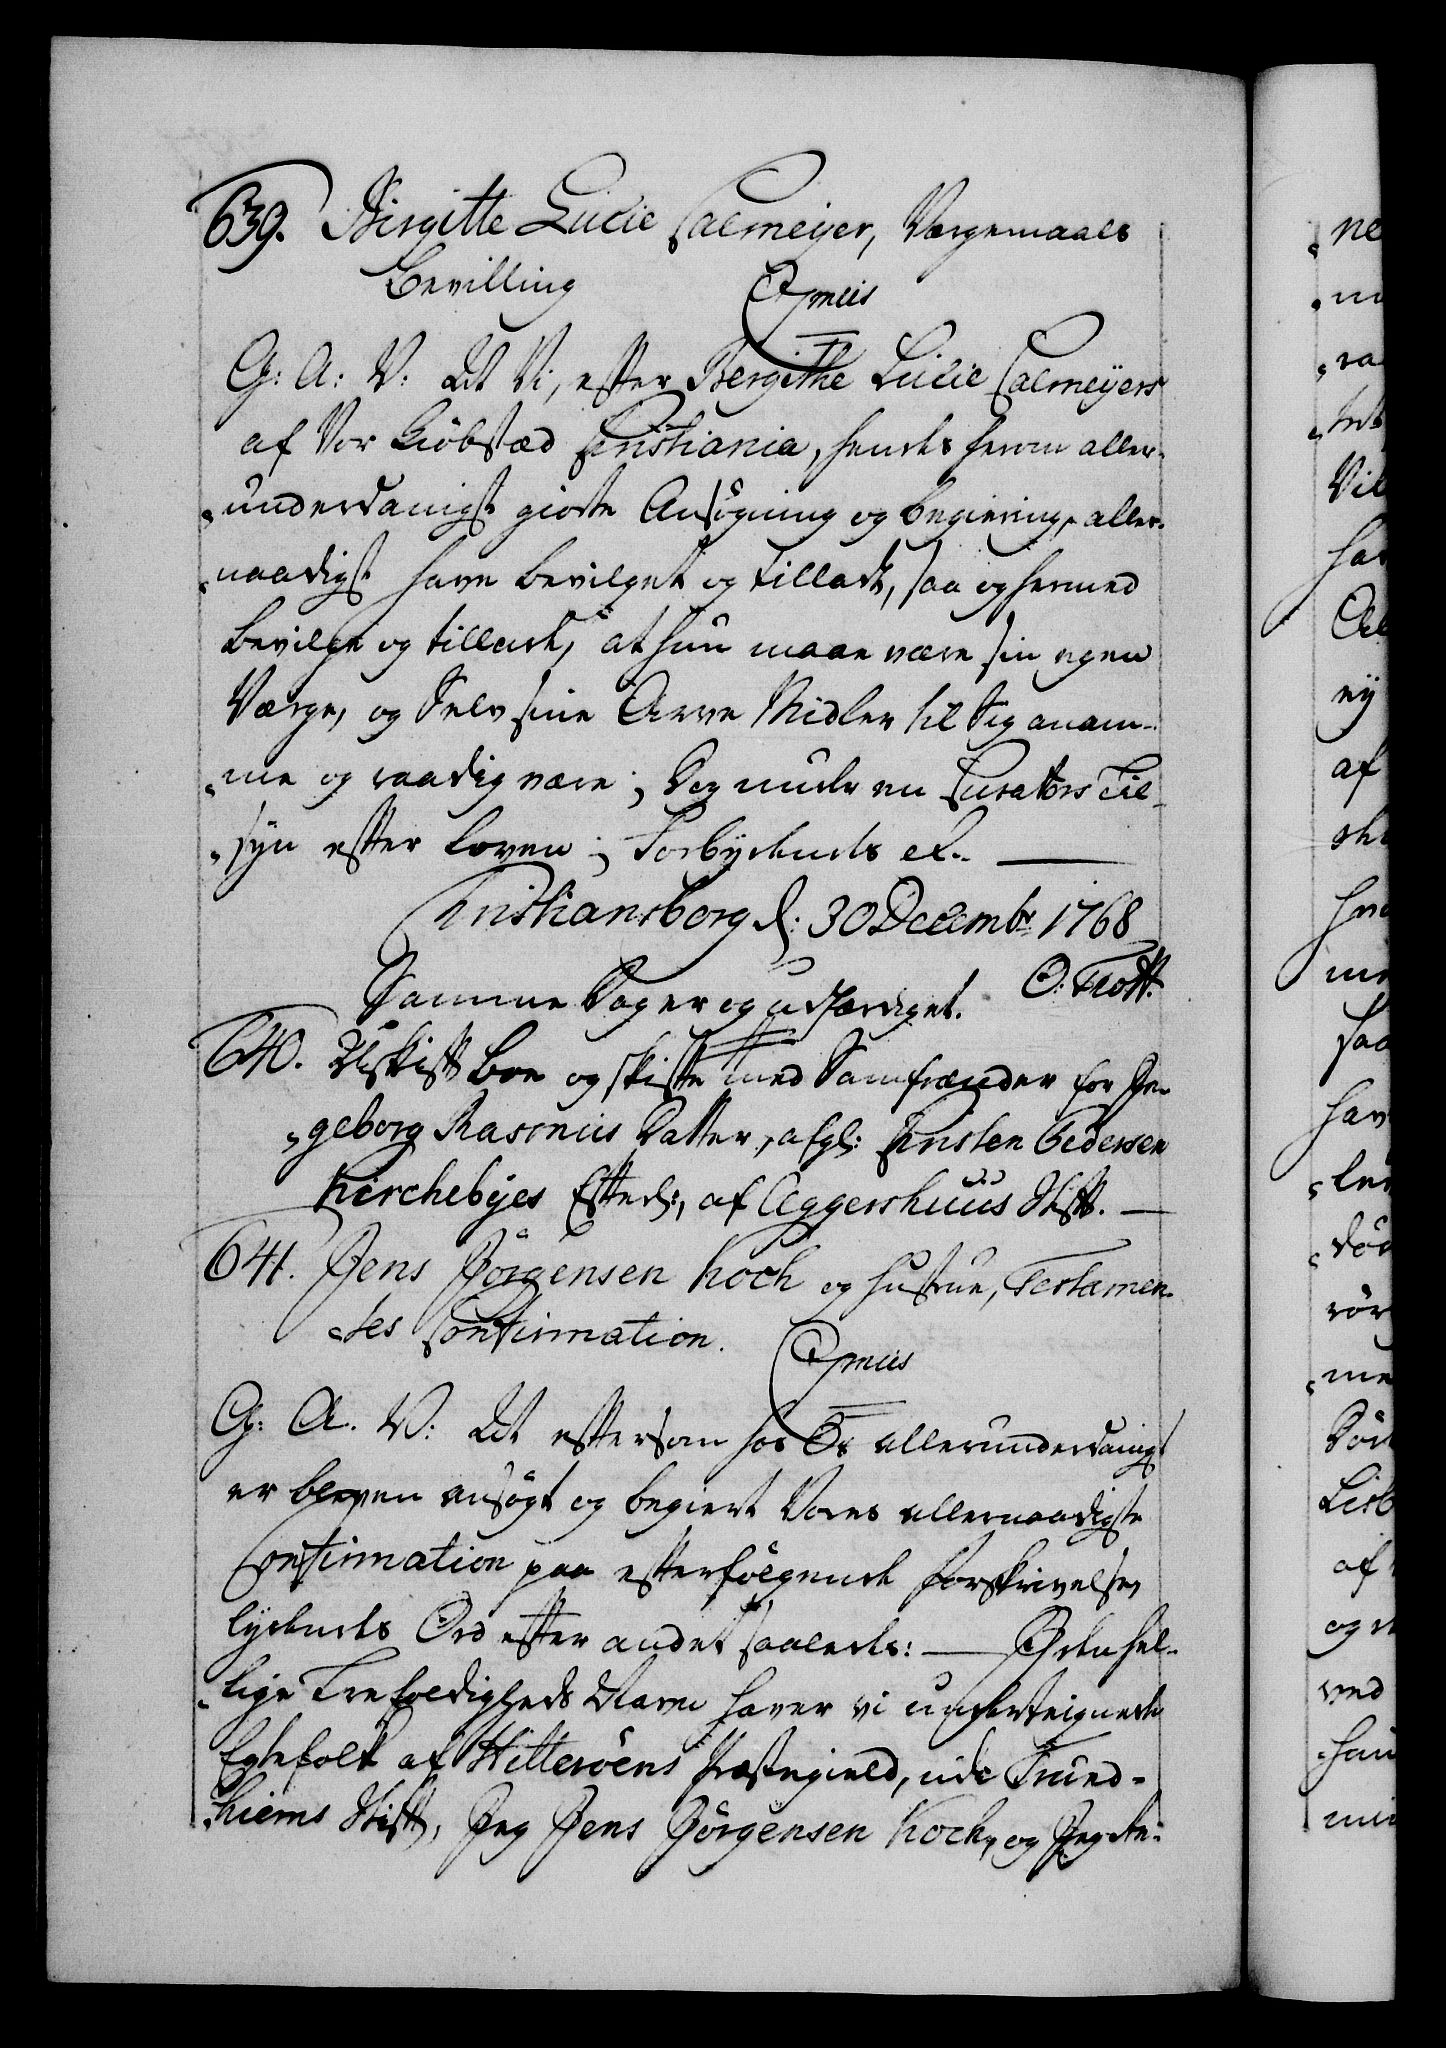 639. Birgitte Lucie Calmeijer, Værgemaals
Bevilling
Qvimus
G: A: V: At Vi, efter Bergithe Lucie Calmeÿers
af Vor Kiöbstæd Christiania, hendes herom aller-
underdanigst giorte Ansøgning og begiering, aller-
naadigst have bevilget og tilladt, saa og hermed
bevilge og tillade, at hun maae være sin egen
Værge, og Selv sine Arve Midler til Sig anam-
me og raadig være; Dog under en Curators Til-
syn efter Loven; Forbydendes etc.
Christiansborg d: 30 Decembr 1768
O: Thott.
Samme Dag er og udfærdiget.
640. Uskift Boe og skifte med Samfrænder for In-
geborg Rasmus Datter, afgl: Christen Pedersen
Kirchebÿes Efterl:, af Aggershuus Stift.
641. Jens Jörgensen Koch og Hustrue, Testamen-
tes Confirmation.
G: A. V: At eftersom hos Os allerunderdanigst
er bleven ansøgt og begiert Vores allernaadigste
Confirmation paa efterfölgende forskrivelse
lydendes Ord efter andet saaledes: I den hel-
lige Trefoldigheds Navn haver vi underteignede
Egtefolk af Hitteröens Præstegield, udi Trund-
hiems Stift, Jeg Jens Jörgensen Koch, og Jeg An-